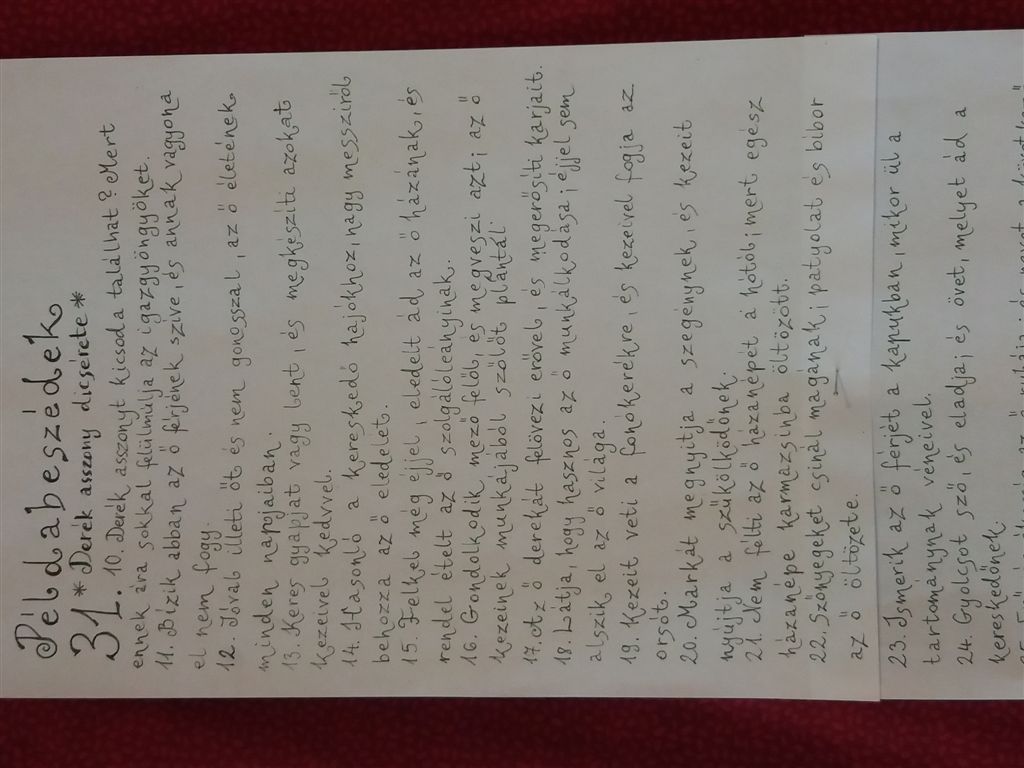 Példabeszédek
31. *Derék asszony dicsérete*
10. Derék asszonyt kicsoda találhat? Mert
ennek ára sokkal felülmúlja az igazgyöngyöket.
11. Bízik abban az ő férjének szíve, és annak vagyona
el nem fogy.
12. Jóval illeti őt és nem gonosszal, az ő életének
minden napjaiban.
13. Keres gyapjat vagy lent, és megkészíti azokat
kezeivel kedvvel.
14. Hasonló a kereskedő hajókhoz, nagy messziről
behozza az ő eledelét.
15. Felkel még éjjel, eledelt ád az ő házának, és
rendel ételt az ő szolgálóleányinak.
16. Gondolkodik mező felől, és megveszi azt; az ő
kezeinek munkájából szőlőt plántál.
17. Az ő derekát felövezi erővel, és megerősíti karjait.
18. Látja, hogy hasznos az ő munkálkodása; éjjel sem
alszik el az ő világa.
19. Kezeit veti a fonókerékre, és kezeivel fogja az
orsót.
20. Markát megnyitja a szegénynek, és kezeit
nyújtja a szűkölködőnek.
21. Nem félti az ő házanépét a hótól, mert egész
házanépe karmazsinba öltözött.
22. Szőnyegeket csinál magának; patyolat és bíbor
az ő öltözete.
23. Ismerik az ő férjét a kapukban, mikor ül a
tartománynak véneivel.
24. Gyolcsot sző, és eladja; és övet, melyet ád a
kereskedőnek.